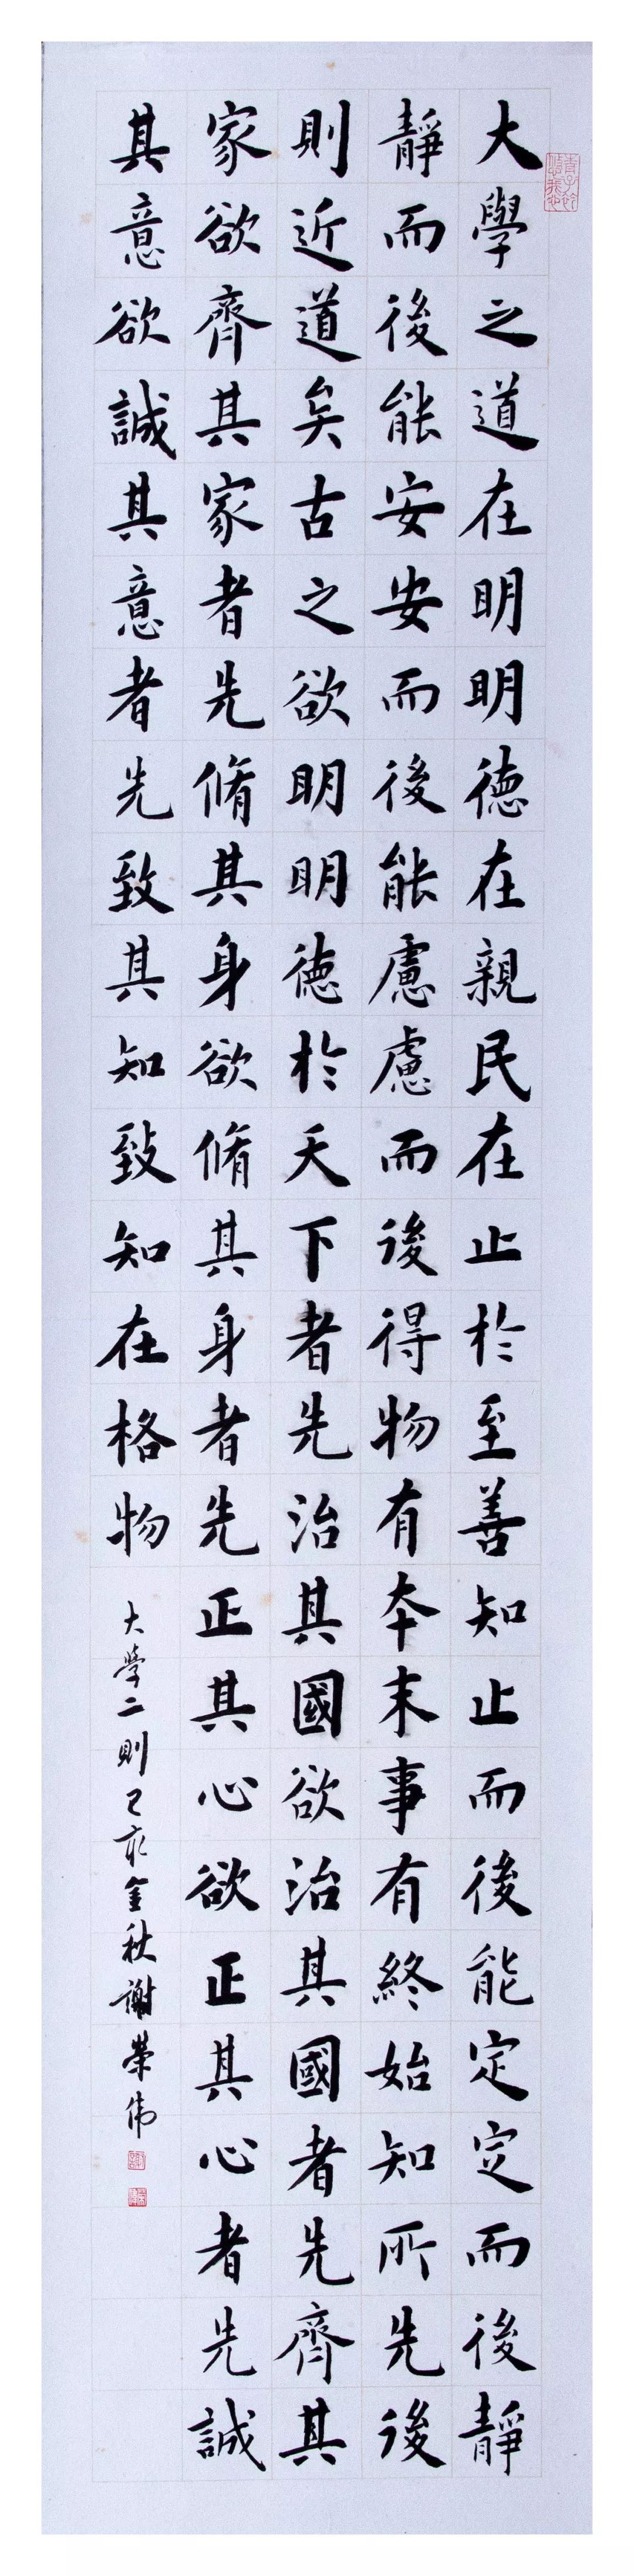 大學之道在明明德在親民在止於至善知止而後能定定而後靜
靜而後能安安而後能慮慮而後得物有本末事有終始知所先後
則近道矣古之欲明明德於天下者先治其國欲治其國者先齊其
家欲齊其家者先脩其身欲脩其身者先正其心欲正其心者先誠
其意欲誠其意者先致其知致知在格物
大學二則己亥金秋謝榮偉